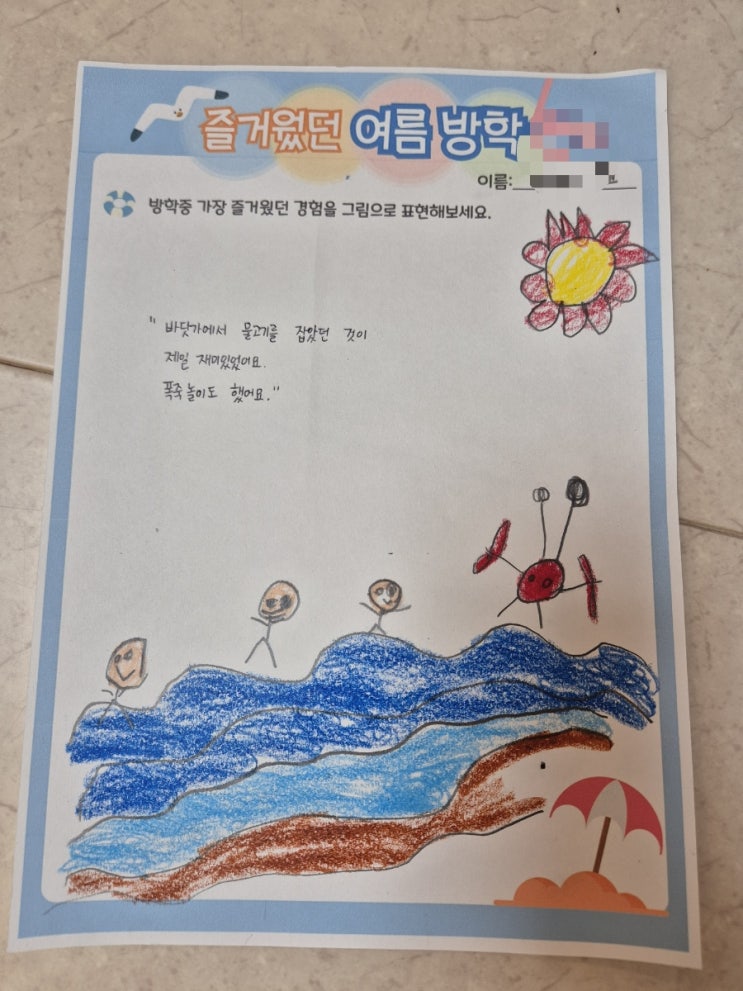 즐거웠던 여름 방학
이름:
방학중 가장 즐거웠던 경험을 그림으로 표현해보세요.
" 바닷가에서 물고기를 잡았던 것이
제일 재미있었어요.
폭죽놀이도 했어요."